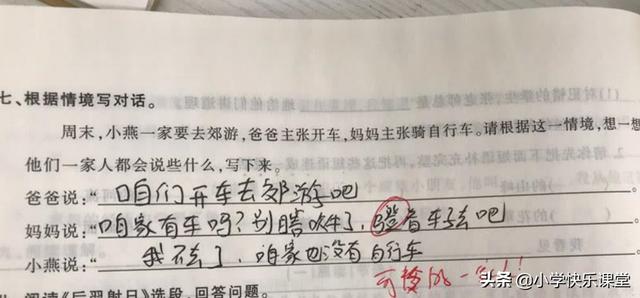 七、根据情境写对话。
周末,小燕一家要去郊游,爸爸主张开车,妈妈主张骑自行车。请根据这一情境,想一想
他们一家人都会说些什么,写下来。
爸爸说:“咱们开车去郊游吧
妈妈说:“咱家有车吗?别瞎吹牛了,蹬着车子去吧
小燕说:“我不去了,咱家也没有自行车
可怜的一家!!
阅读《后羿射日》选段,回答问题。
头条 @小学快乐课堂